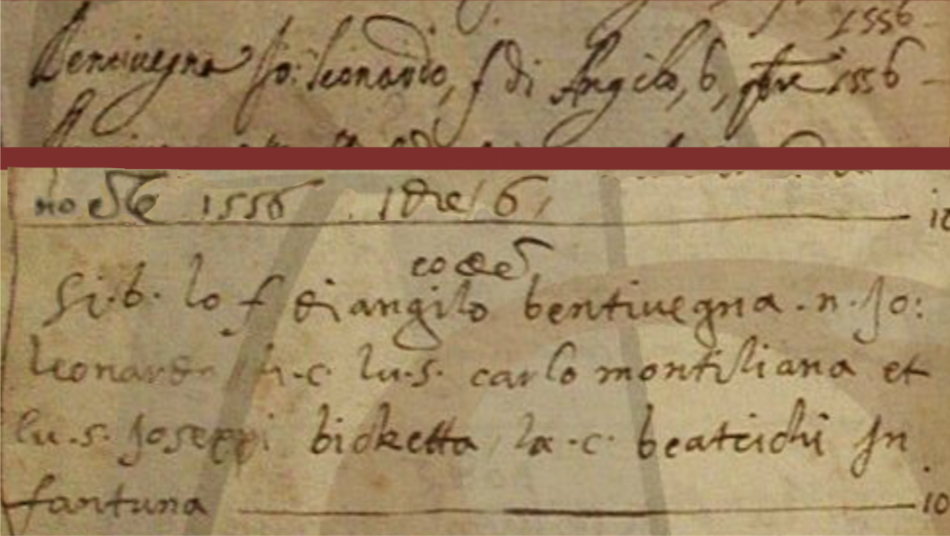 1556
Bencivegna Jo: Leonardo, f di Angilo, 6, 7bre 1556
no 1556 . 7bre 6,
eodē
Si.b. lo f di angilo bentivegna . n. Jo:
leonardo lu.c. lu.s. carlo montiliana et
lu.s. Joseppi bicketta la.c. beatrichi In
fantuna
10